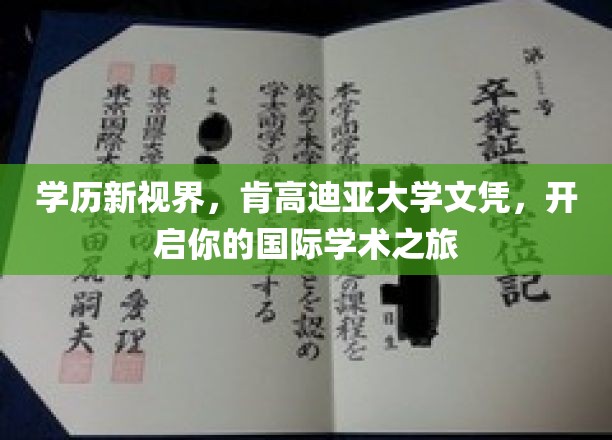 学历新视界，肯高迪亚大学文凭，开
启你的国际学术之旅
第 号
卒業証書 学位記
本学商学部 定の課程を
修めて本学 ことを認め
学士(商学)の する
平成
東京国際大学 村愛理
東京国際大 長田尻嗣夫